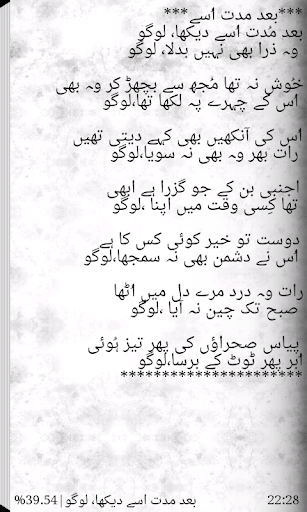 ***بعد مدت اسے***
بعد مُدت اُسے دیکھا، لوگو
وہ ذرا بھی نہیں بدلا، لوگو
خُوش نہ تھا مُجھ سے بچھڑ کر وہ بھی
اُس کے چہرے پہ لکھا تھا،لوگو
اُس کی آنکھیں بھی کہے دیتی تھیں
رات بھر وہ بھی نہ سویا،لوگو
اجنبی بن کے جو گزرا ہے ابھی
تھا کِسی وقت میں اپنا ،لوگو
دوست تو خیر کوئی کس کا ہے
اُس نے دشمن بھی نہ سمجھا،لوگو
رات وہ درد مرے دل میں اُٹھا
صبح تک چین نہ آیا ،لوگو
پیاس صحراؤں کی پھر تیز ہُوئی
اَبر پھر ٹوٹ کے برسا،لوگو
**********************
بعد مدت اسے دیکھا، لوگو|39.54%
22:28